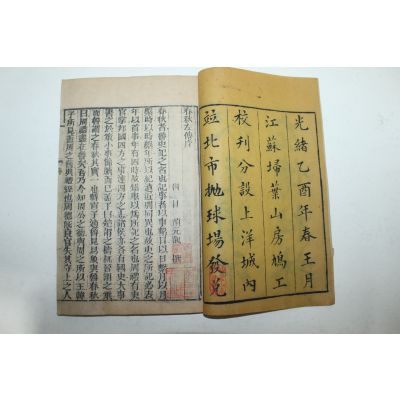 光緒乙酉年春王月
江蘇掃葉山房鳩工
校刊分設上洋城內
竝北市拋球場發兌
春秋左傳序
晉 杜 預元凱 撰
春秋者魯史記之名也記事者以事繫日以日繫月以月
繫時以時繫年所以紀遠近別同異也故史之所記必表
年以首事年有四時故錯舉以為所記之名也周禮有史
官掌邦國四方之事達四方之志諸侯亦各有國史大事
書之於策小事簡牘而已孟子曰楚謂之檮杌晉謂之乘
而魯謂之春秋其實一也韓宣子適魯見易象與魯春秋
曰周禮盡在魯矣吾乃今知周公之德與周之所以王韓
子所見蓋周之舊典禮經也周德既衰官失其守上之人